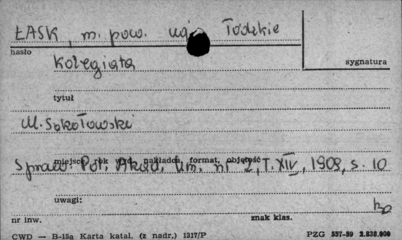 ŁASK, m. pow. woj. Łódzkie
hasło
Kolegiata
sygnatura
tytuł
M. Sokołowski
miejsc rok wyd., nakładca, format, objętość
Spraw. Pol. Akad. Um. nr 2, T. XIV, 1909, s. 10
uwagi:
nr inw.
znak klas.
CWD — B-15a Karta katal. (z nadr.) 1317/P PZG